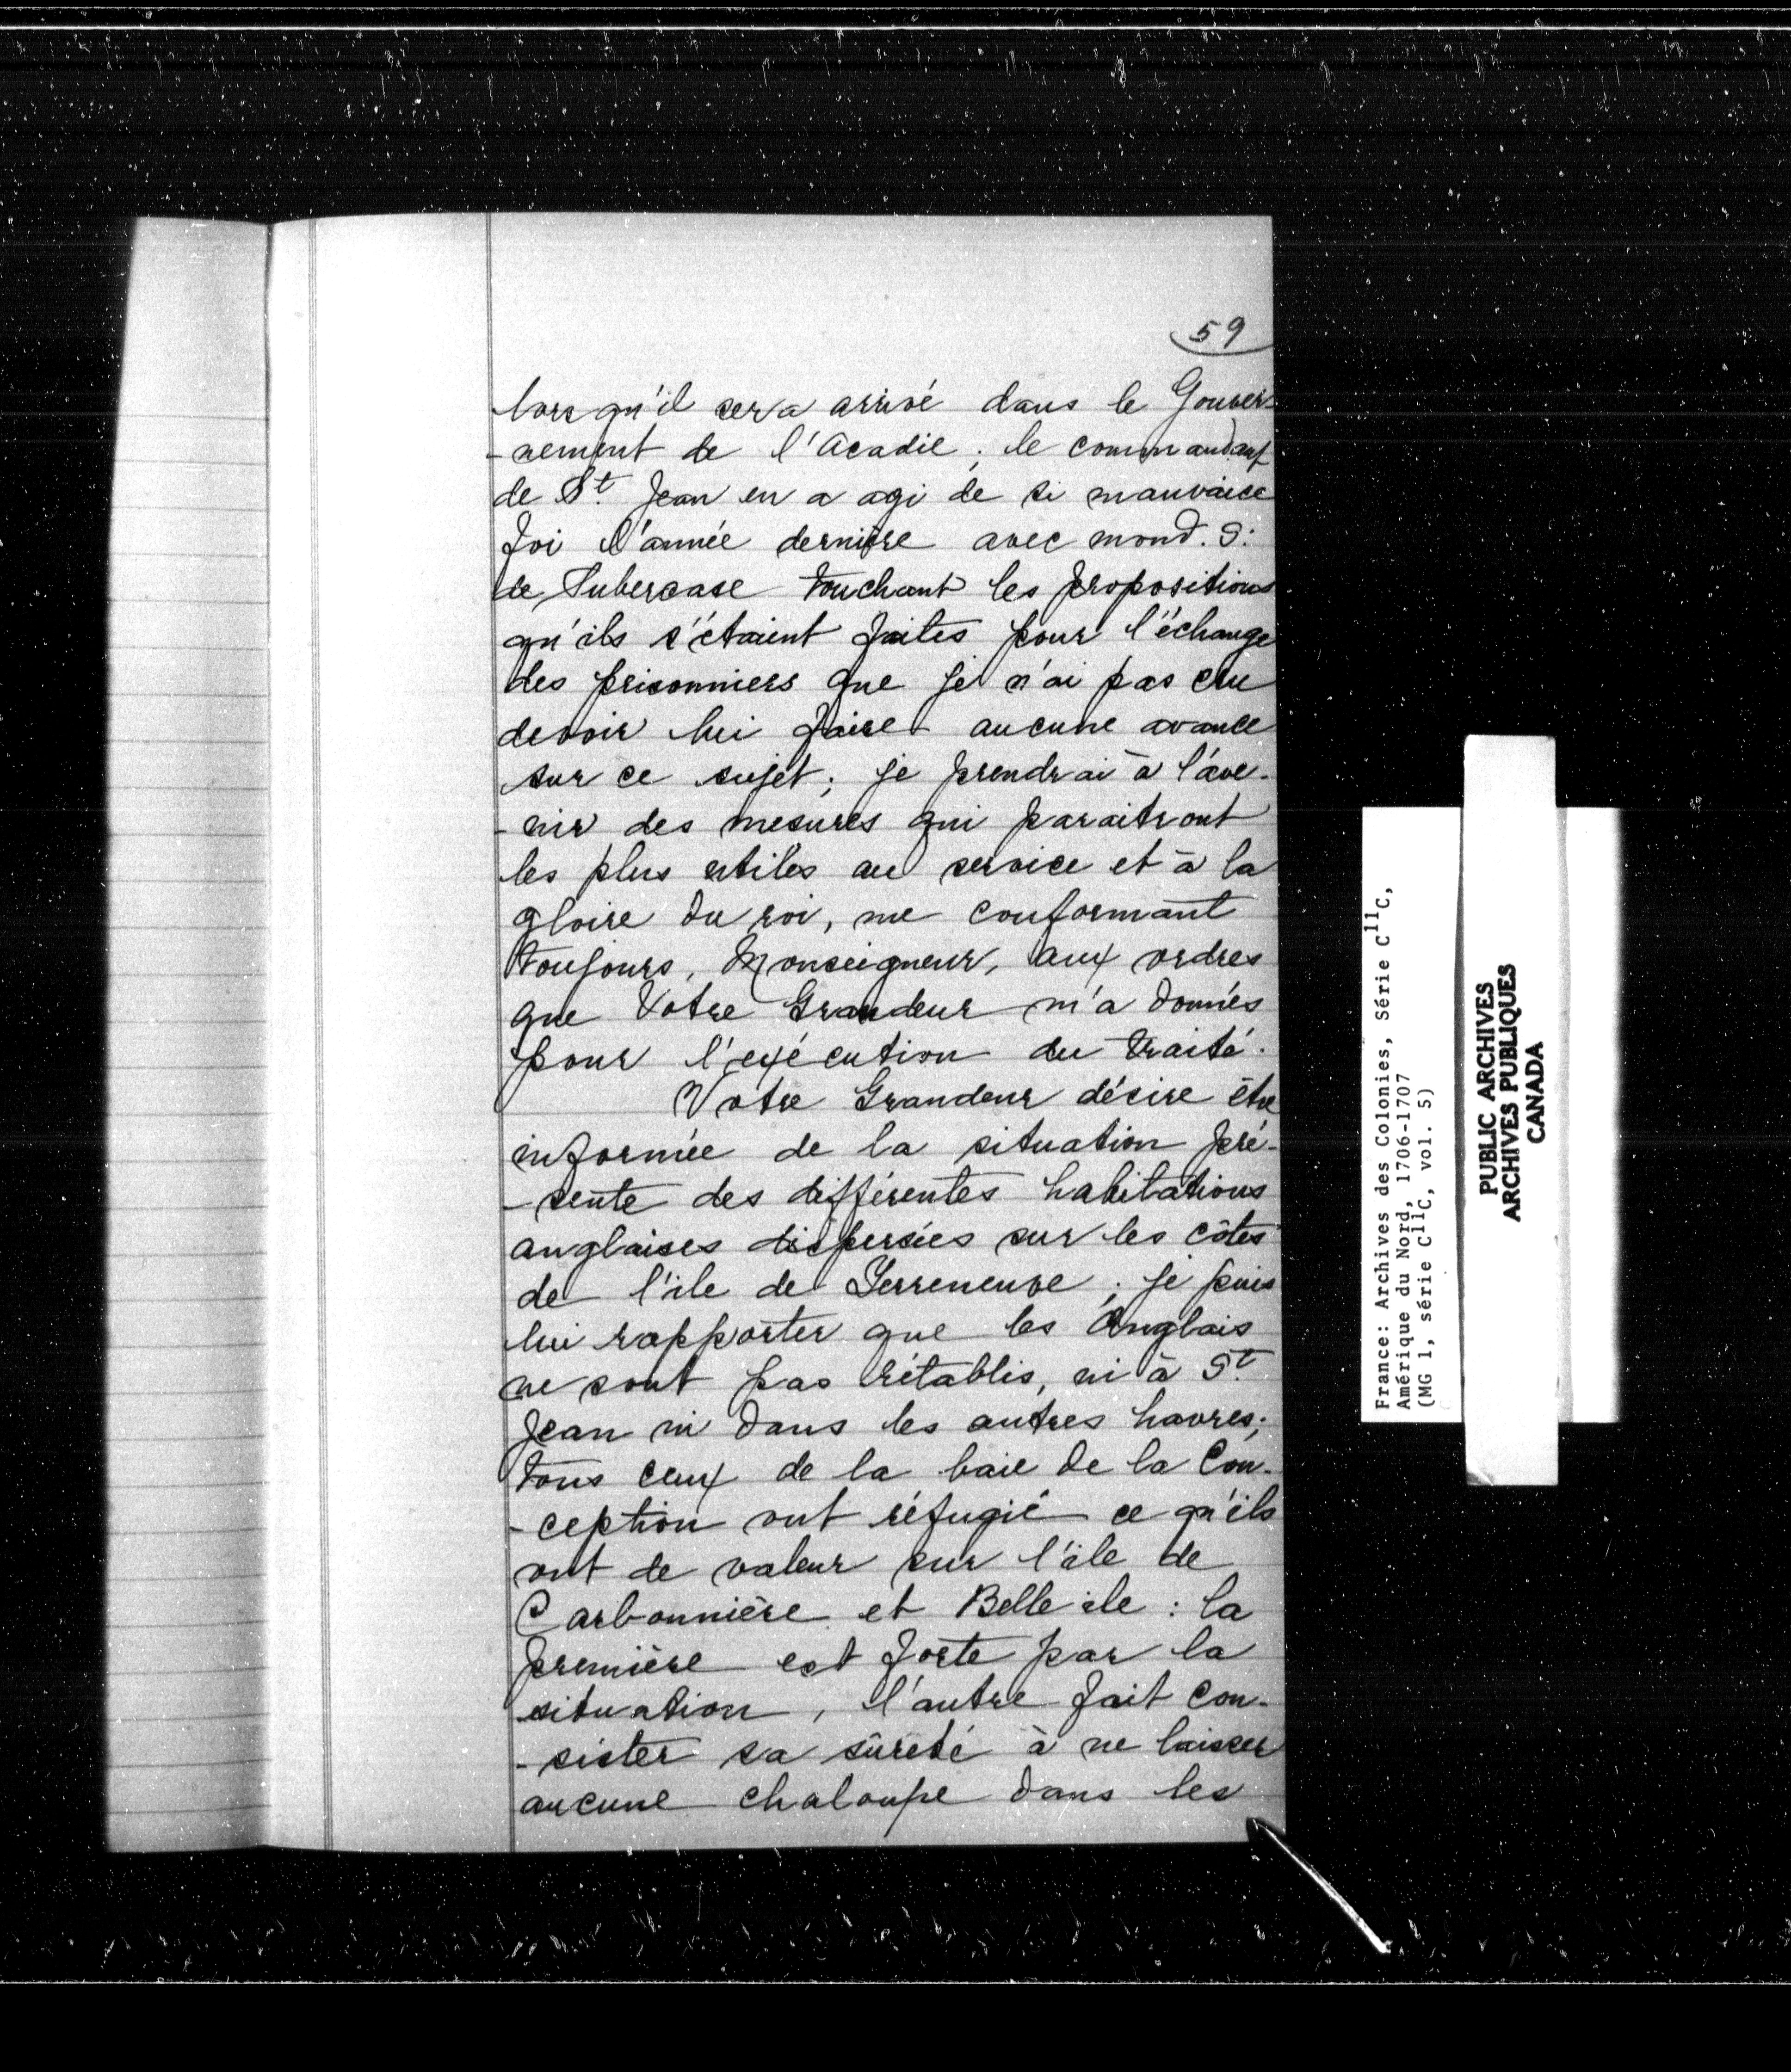 59
lorsqu'il sera arrivé dans le Gouver-
-nement de l'Acadie ; le commandant
de St. Jean en a agi de si mauvaise
foi l'année dernière avec mond. S:
de Subercase touchant les propositions
qu'ils s'étaient faites pour l'échange
des prisonniers que je n'ai pas cru
devoir lui faire aucune avance
sur ce sujet ; je prendrai à l'ave-
-nir des mesures qui paraitront
les plus utiles au service et à la
gloire du roi, me conformant
toujours, Monseigneur, aux ordres
que Votre Grandeur m'a donnés
pour l'exécution du traité.
Votre Grandeur désire être
informée de la situation pré-
-sente des différentes habitations
anglaises dispersées sur les côtes
de l'ile de Terreneuve ; je puis
lui rapporter que les Anglais
ne sont pas rétablis, ni à St.
Jean ni dans les autres havres ;
tous ceux de la baie de la Con-
-ception ont réfugié ce qu'ils
ont de valeur sur l'île de
Carbonnière et Belle ile : la
première est forte par la
situation, l'autre fait con-
-sister sa sûreté à ne laisser
aucune chaloupe dans les
France: Archives des Colonies, Série C11C,
Amérique du Nord, 1706-1707
(MG 1, série C11C, vol. 5)
PUBLIC ARCHIVES
ARCHIVES PUBLIQUES
CANADA